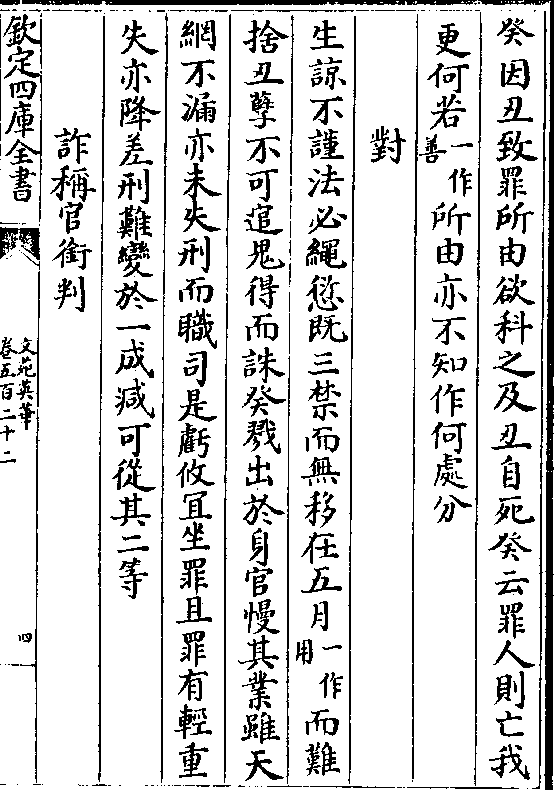 癸因丑致罪所由欲科之及丑自死癸云罪人則亡我
更何若一作善所由亦不知作何處分
對
生諒不謹法必繩愆既三禁而無移在五月一作用而難
捨丑孽不可逭鬼得而誅癸戮出於身官慢其業雖天
網不漏亦未失刑而職司是虧攸冝坐罪且罪有輕重
失亦降差刑難變於一成减可從其二等
詐稱官銜判
欽定四庫全書
文苑英華
卷五百二十二
四